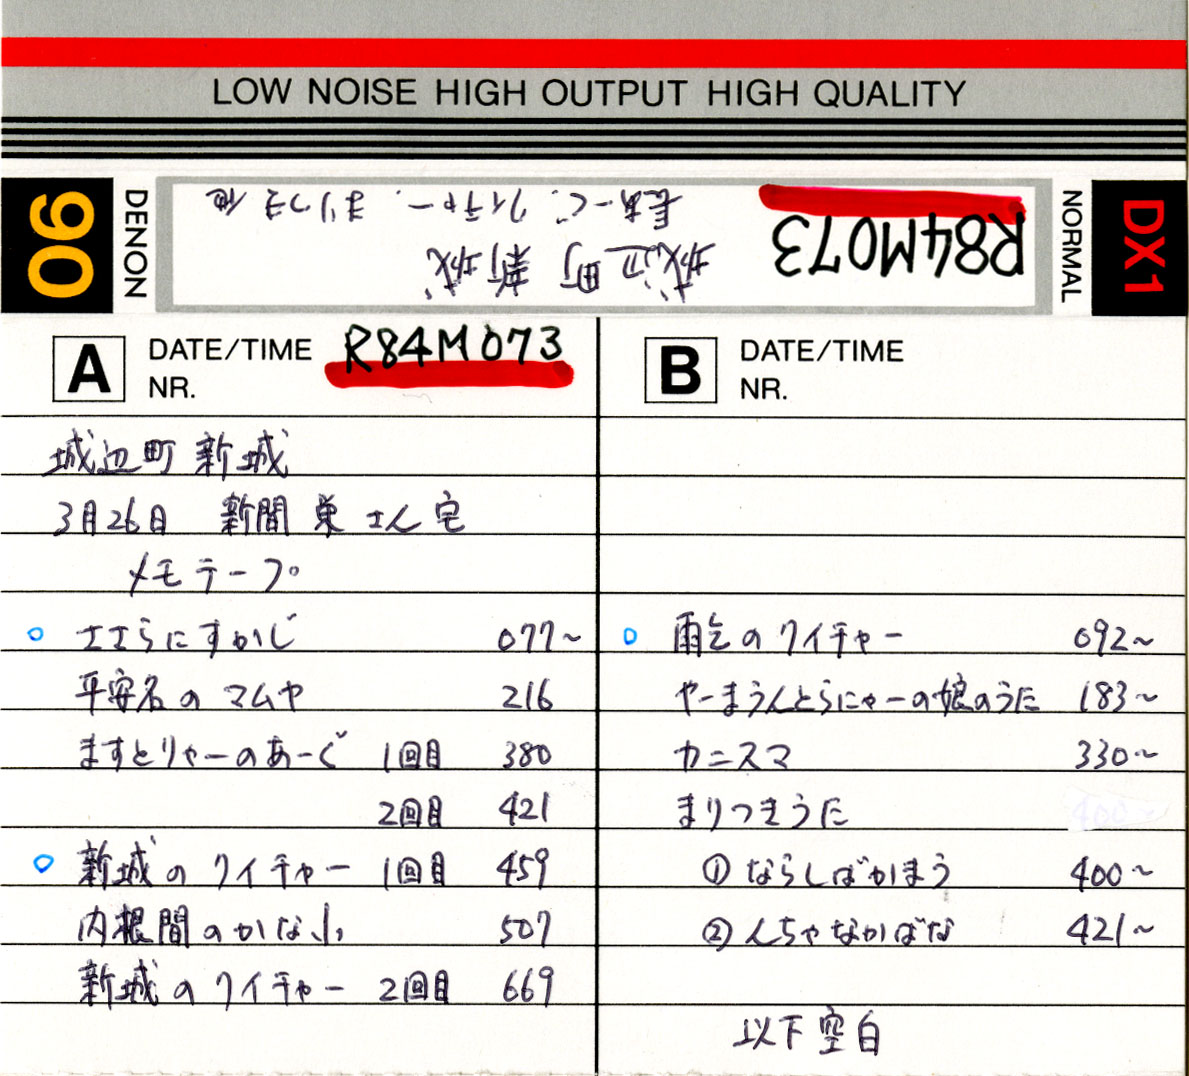 LOW NOISE HIGH OUTPUT HIGH QUALITY
90
DENON
R84M073
城辺町 新城
長あーぐ、クイチャー、まりつき 他
NORMAL
DX1
A DATE/TIME R84M073
NR.
城辺町 新城
3月26日 新間 栄さん宅
メモテープ
ささらにすかじ 077~
平安名のマムヤ 216
ますとりゃーのあーぐ 1回目 380
2回目 421
新城のクイチャー 1回目 459
内根間のかな小 507
新城のクイチャー 2回目 669
B DATE/TIME
NR.
雨乞のクイチャー 092~
やーまうんとらにゃーの娘のうた 183~
カニスマ 330~
まりつきうた
① ならしばかまう 400~
② んちゃなかばな 421~
以下空白